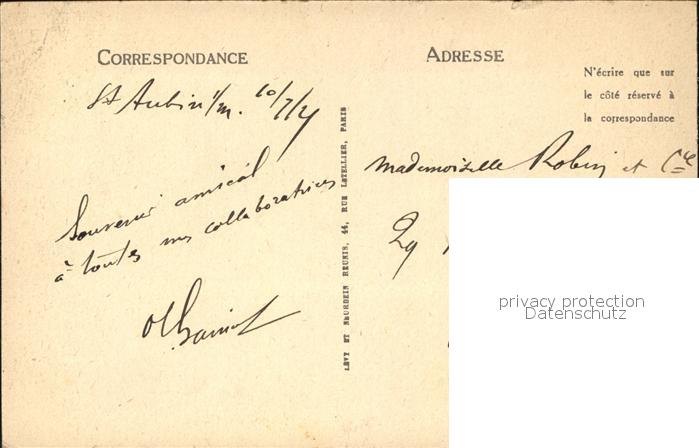 CORRESPONDANCE
St Aubin s/m. 10/7/21
Souvenir amical
à toutes mes collaboratrices
LÉVY ET NEURDEIN RÉUNIS, 44, RUE LETELLIER, PARIS
ADRESSE
N'écrire que sur
le côté réservé à
la correspondance
Mademoiselle Robin et Cie
29
privacy protection
Datenschutz